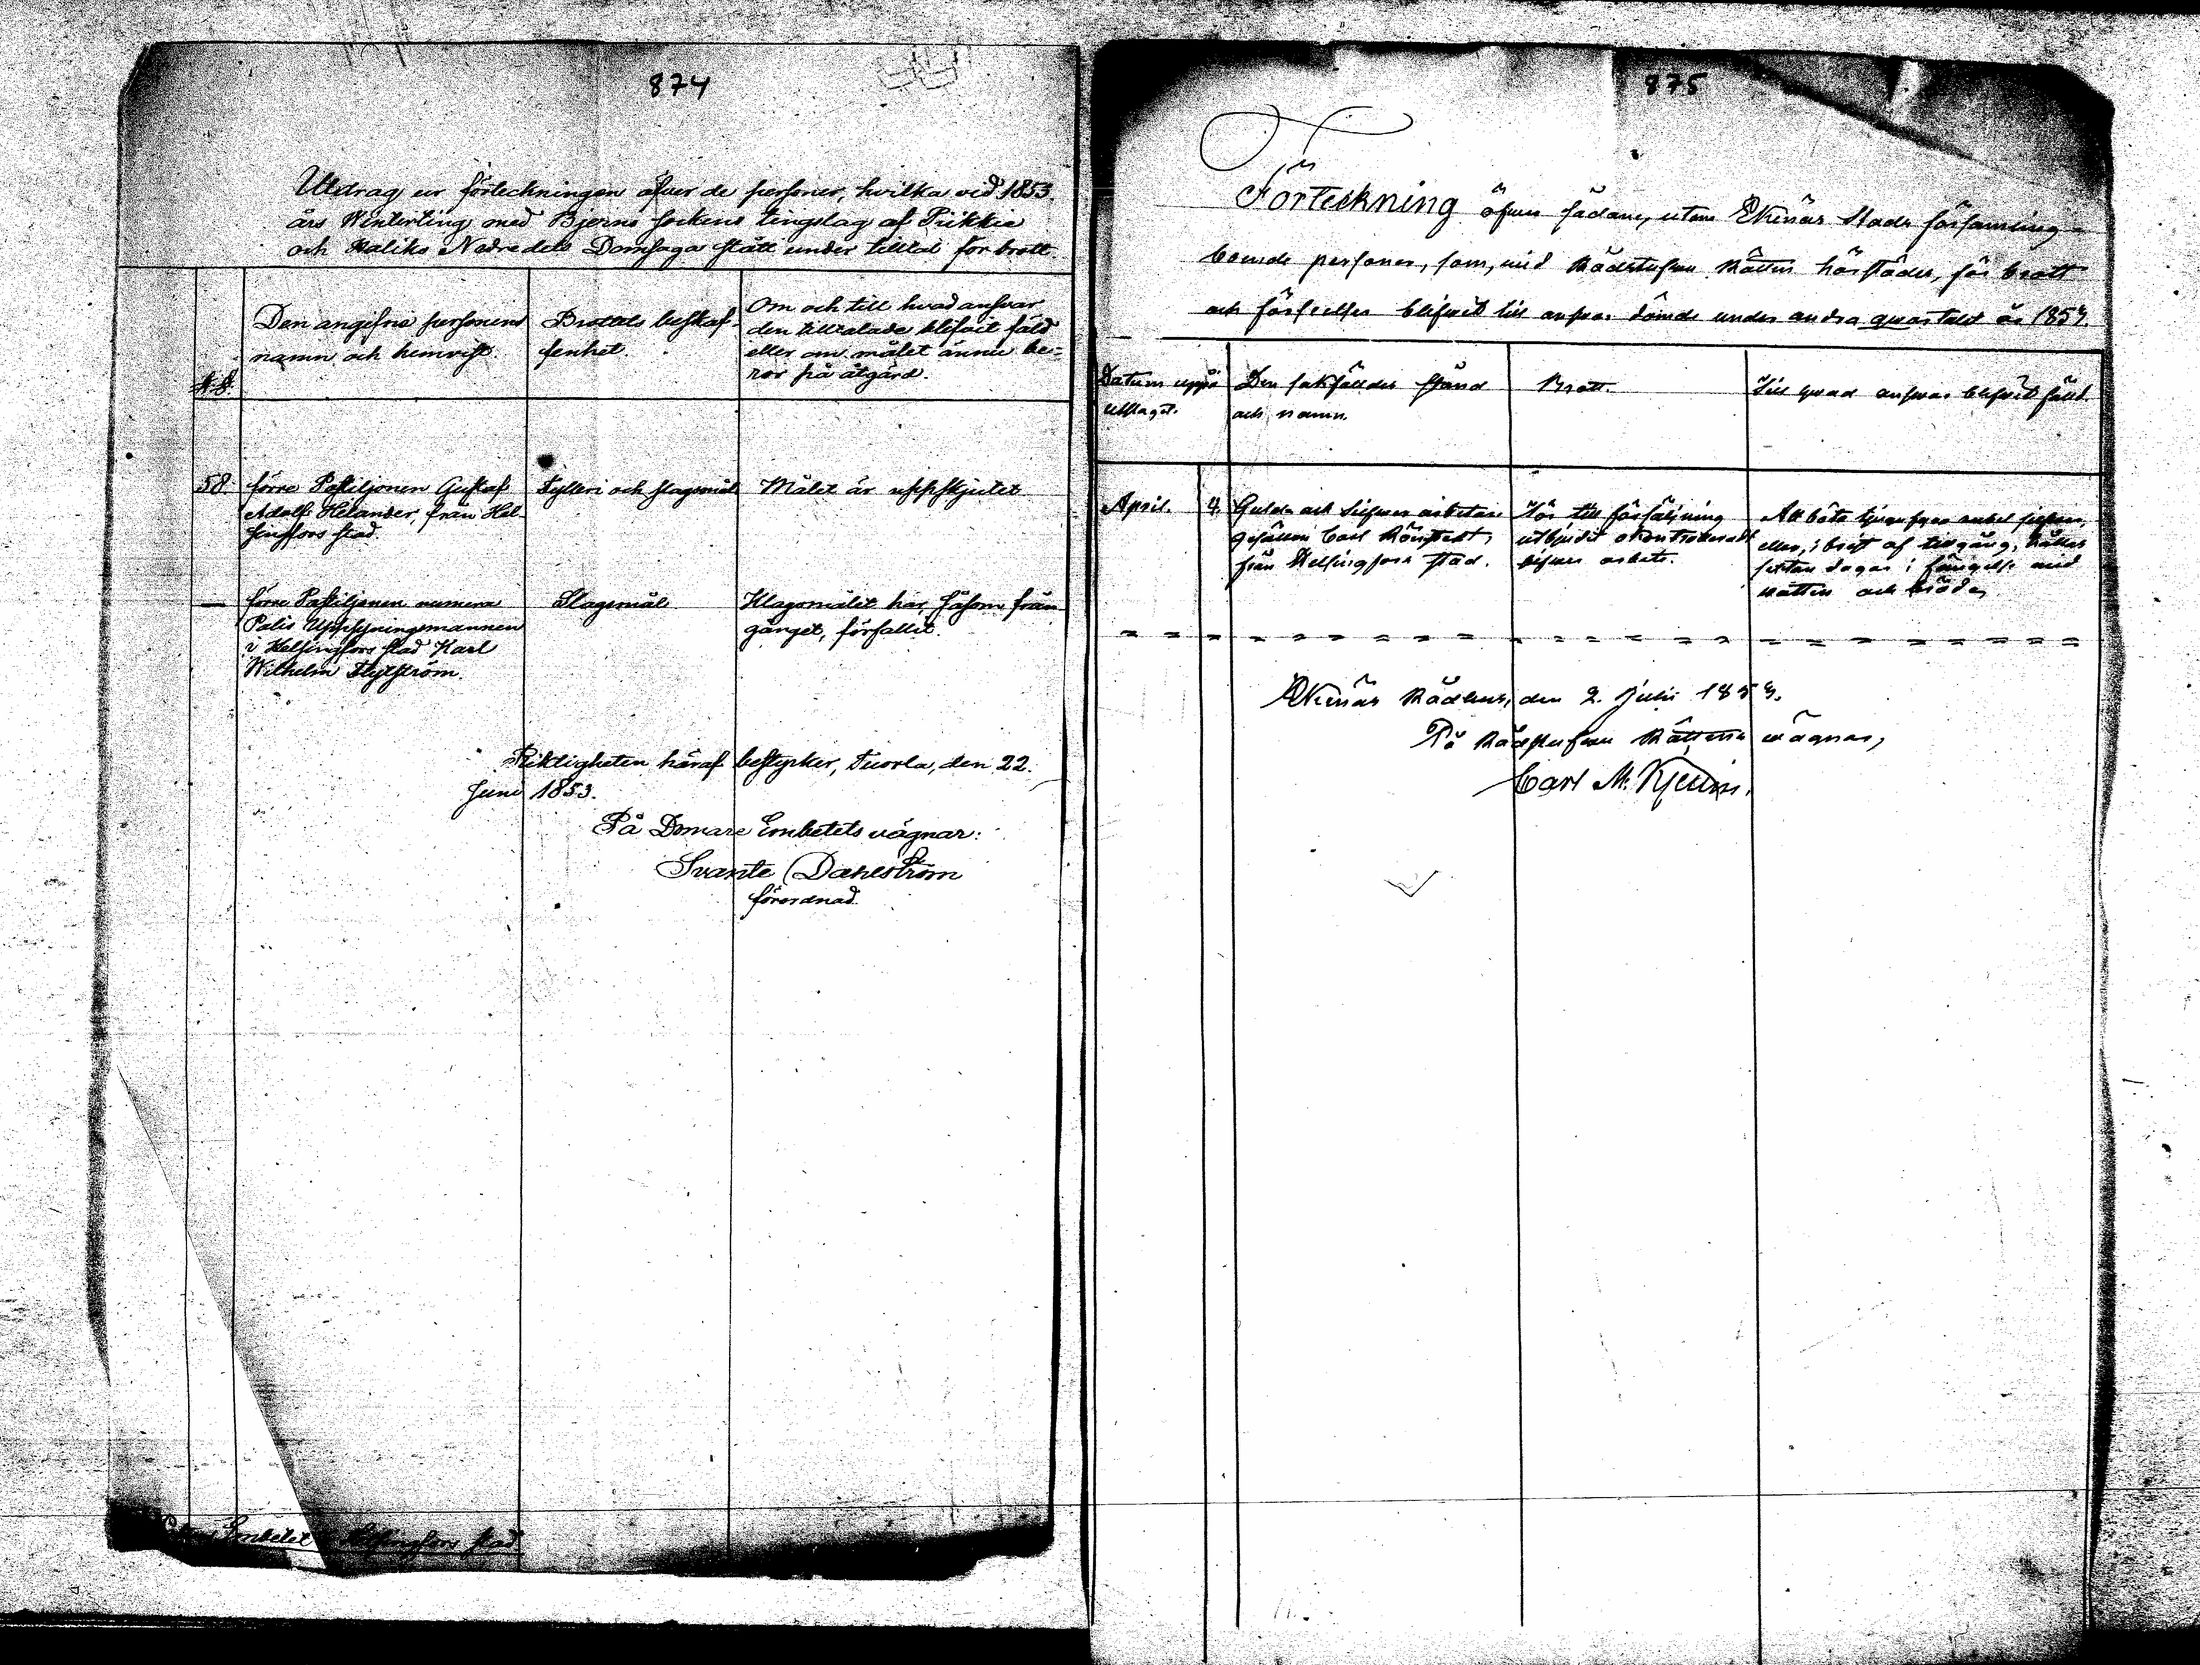 874
Utdrag ur förteckningen öfver de personer, hvilka vid 1853.
års Winterting med Bjerno sockens tingslag af Piikkie
och Haliko Nedredels Domsaga stått under tilltal för brott.
Den angifne personens
namn och hemvist.
Brottets beskaf-
fenhet.
Om och till hvad ansvar
den tilltalade blifvit fäld
eller om målet ännu be-
ror på åtgärd.
58.
förre Postiljonen Gustaf
Adolf Helander, från Hel-
singfors stad.
Fylleri och slagsmål
Målet är uppskjutet
—
förre Postiljonen numera
Polis Uppsyningsmannen
i Helsingfors stad Karl
Wilhelm
Slagsmål
Klagomålet har, såsom från-
gånget, förfallit.
Riktigheten häraf bestyrker, Tuorla, den 22.
Juni 1853.
På Domare Embetets vägnar:
Svante Dahlström
förordnad.
Embetet Helsingfors stad
875
Förteckning öfver sådane, utom Ekenäs Stads församling
boende personer, som, vid Rådstufvu Rätten härstädes, för brott
och förseelser blifvit till ansvar dömde under andra quartalet år 1854.
Datum uppå
utslaget.
Den sakfälldes stånd
och namn.
Brott.
Till hvad ansvar blifvit fälld.
April. 4.
Gulds och Silfver arbetare
gesällen Carl
från Helsingfors stad.
För till försäljning
utbjudit okontrolleradt
silfver arbete.
Att böta tjugufyra rubel silfver,
eller, i brist af tillgång, hållas
sexton dagar i fängelse vid
vatten och bröd.
Ekenäs Rådhus, den 2. Juli 1854.
På Rådstufvu Rättens vägnar,
Carl M.